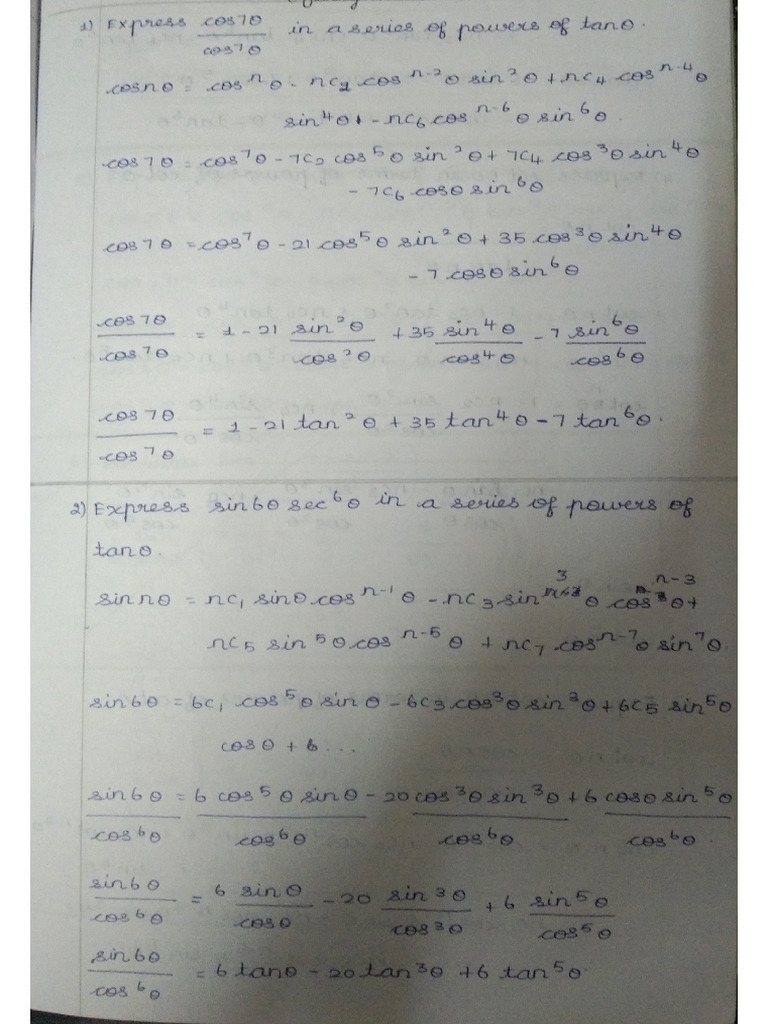 1) Express cos7θ/cos⁷θ in a series of powers of tanθ.
cosnθ = cosⁿθ - nc₂ cosⁿ⁻²θ sin²θ + nc₄ cosⁿ⁻⁴θ
sin⁴θ + - nc₆ cosⁿ⁻⁶θ sin⁶θ.
cos7θ = cos⁷θ - 7c₂ cos⁵θ sin²θ + 7c₄ cos³θ sin⁴θ
- 7c₆ cosθ sin⁶θ
cos7θ = cos⁷θ - 21 cos⁵θ sin²θ + 35 cos³θ sin⁴θ
- 7 cosθ sin⁶θ
cos7θ/cos⁷θ = 1 - 21 sin²θ/cos²θ + 35 sin⁴θ/cos⁴θ - 7 sin⁶θ/cos⁶θ
cos7θ/cos⁷θ = 1 - 21 tan²θ + 35 tan⁴θ - 7 tan⁶θ.
2) Express sin6θ sec⁶θ in a series of powers of
tanθ.
sin nθ = nc₁ sinθ cosⁿ⁻¹θ - nc₃ sin³θ cosⁿ⁻³θ +
nc₅ sin⁵θ cosⁿ⁻⁵θ + nc₇ cosⁿ⁻⁷θ sin⁷θ.
sin6θ = 6c₁ cos⁵θ sinθ - 6c₃ cos³θ sin³θ + 6c₅ sin⁵θ
cosθ + 6 ...
sin6θ/cos⁶θ = 6 cos⁵θ sinθ/cos⁶θ - 20 cos³θ sin³θ/cos⁶θ + 6 cosθ sin⁵θ/cos⁶θ.
sin6θ/cos⁶θ = 6 sinθ/cosθ - 20 sin³θ/cos³θ + 6 sin⁵θ/cos⁵θ
sin6θ/cos⁶θ = 6 tanθ - 20 tan³θ + 6 tan⁵θ.